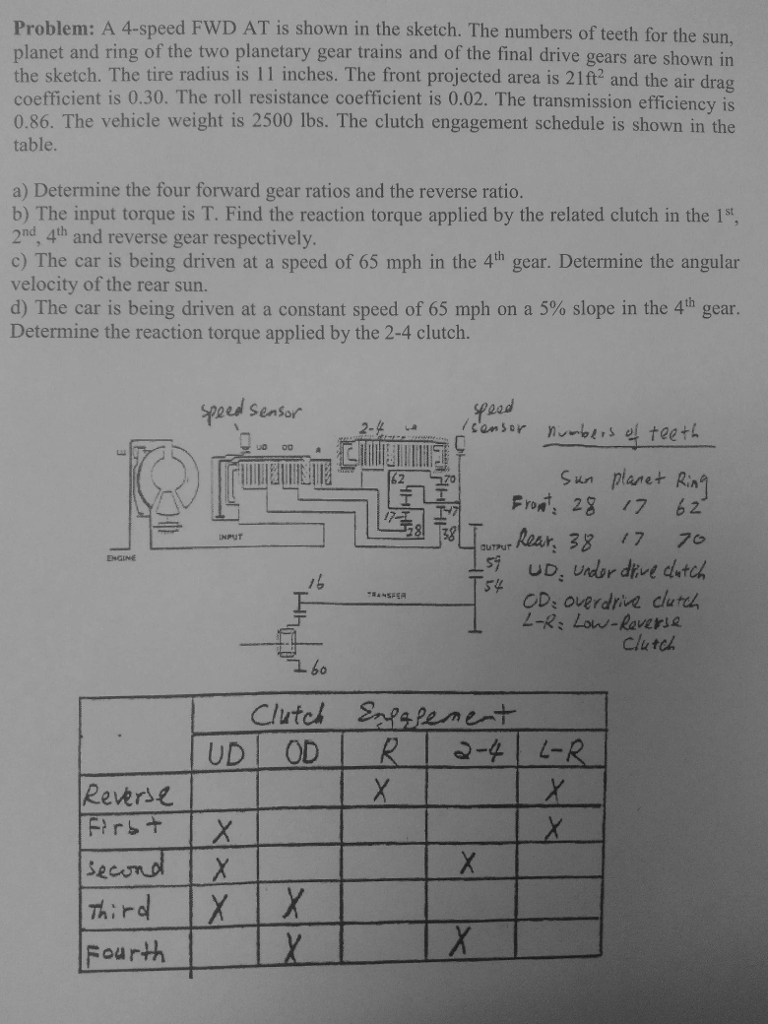 Problem: A 4-speed FWD AT is shown in the sketch. The numbers of teeth for the sun,
planet and ring of the two planetary gear trains and of the final drive gears are shown in
the sketch. The tire radius is 11 inches. The front projected area is 21ft² and the air drag
coefficient is 0.30. The roll resistance coefficient is 0.02. The transmission efficiency is
0.86. The vehicle weight is 2500 lbs. The clutch engagement schedule is shown in the
table.
a) Determine the four forward gear ratios and the reverse ratio.
b) The input torque is T. Find the reaction torque applied by the related clutch in the 1st,
2nd, 4th and reverse gear respectively.
c) The car is being driven at a speed of 65 mph in the 4th gear. Determine the angular
velocity of the rear sun.
d) The car is being driven at a constant speed of 65 mph on a 5% slope in the 4th gear.
Determine the reaction torque applied by the 2-4 clutch.
speed sensor
speed
sensor
2-4
numbers of teeth
UD OD R
62 70
Sun planet Ring
Front: 28 17 62
17 17
28 38
INPUT
OUTPUT
Rear: 38 17 70
ENGINE
59
54
UD: Under drive clutch
16
TRANSFER
OD: overdrive clutch
L-R: Low-Reverse
Clutch
60
Clutch Engagement
UD OD R 2-4 L-R
Reverse X X
First X X
Second X X
Third X X
Fourth X X